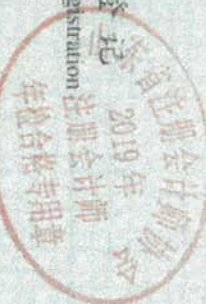 登记
gistration
东省注册会计师协会
2019年
注册会计师
年检合格专用章